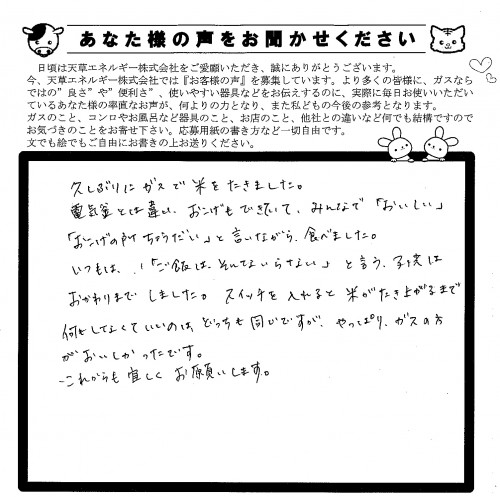 あなた様の声をお聞かせください
日頃は天草エネルギー株式会社をご愛顧いただき、誠にありがとうございます。
今、天草エネルギー株式会社では『お客様の声』を募集しています。より多くの皆様に、ガスなら
ではの”良さ”や”便利さ”、使いやすい器具などをお伝えするのに、実際に毎日お使いいただい
ているあなた様の率直なお声が、何よりの力となり、また私どもの今後の参考となります。
ガスのこと、コンロやお風呂など器具のこと、お店のこと、他社との違いなど何でも結構ですので
お気づきのことをお寄せ下さい。応募用紙の書き方など一切自由です。
文でも絵でもご自由にお書きの上お送りください。
久しぶりにガスで米をたきました。
電気釜とは違い、おこげもできていて、みんなで「おいしい」
「おこげの所ちょうだい」と言いながら、食べました。
いつもは、「ご飯は、そんなにいらない」と言う、子供は
おかわりまでしました。スイッチを入れると米がたき上がるまで
何もしなくていいのは、どっちも同じですが、やっぱり、ガスの方
がおいしかったです。
これからも宜しくお願いします。